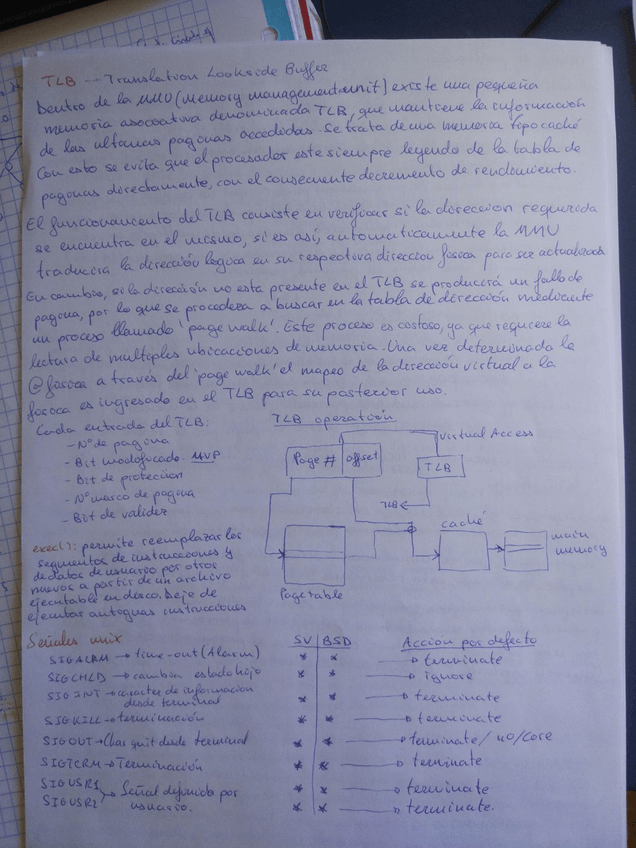 TLB -- Translation Lookside Buffer
Dentro de la MMU (memory management unit) existe una pequeña
memoria asociativa denominada TLB, que mantiene la información
de las ultimas paginas accedidas. Se trata de una memoria tipo caché
Con esto se evita que el procesador este siempre leyendo de la tabla de
paginas directamente, con el consecuente decremento de rendimiento.
El funcionamiento del TLB consiste en verificar si la direccion requerida
se encuentra en el mismo, si es así, automaticamente la MMU
traducira la dirección logica en su respectiva direccion fisica para ser actualizada
En cambio, si la dirección no esta presente en el TLB se producirá un fallo de
pagina, por lo que se procedera a buscar en la tabla de dirección mediante
un proceso llamado 'page walk'. Este proceso es costoso, ya que requiere la
lectura de multiples ubicaciones de memoria. Una vez determinada la
@ fisica a través del 'page walk' el mapeo de la dirección virtual a la
fisica es ingresado en el TLB para su posterior uso.
Cada entrada del TLB:
- Nº de pagina
- Bit modificado MVP
- Bit de protección
- Nº marco de pagina
- Bit de validez
TLB operation
Virtual Access
Page #
offset
TLB
TLB
caché
main
memory
Page table
exec(): permite reemplazar los
segmentos de instrucciones y
de datos de usuario por otros
nuevos a partir de un archivo
ejecutable en disco. Deja de
ejecutar antiguas instrucciones
Señales unix SV BSD Accion por defecto
SIGALRM → time-out (Alarm) * * → terminate
SIGCHLD → cambia estado hijo * * → ignore
SIGINT → caracter de informacion
desde terminal * * → terminate
SIGKILL → terminación * * → terminate
SIGOUT → Char quit desde terminal * * → terminate / no/core
SIGTERM → Terminación * * → terminate
SIGUSR1 * * → terminate
SIGUSR2 Señal definida por
usuario. * * → terminate.